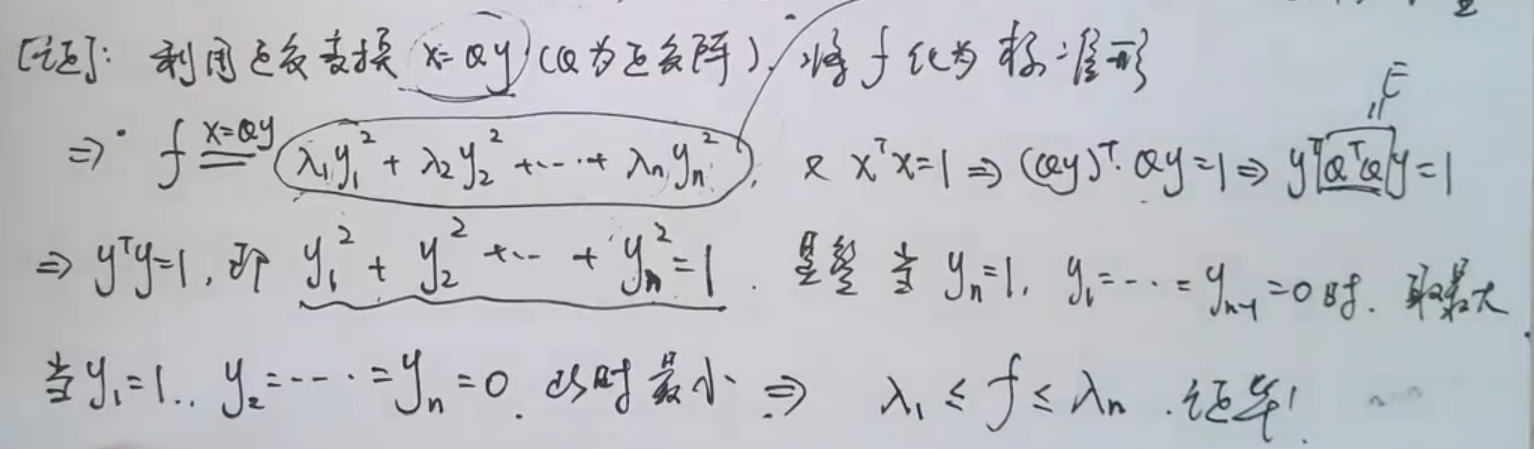 [证]: 利用正交变换 x=Qy (Q为正交阵), 将 f 化为标准形
E
⇒ f x=Qy λ₁y₁² + λ₂y₂² +···+ λₙyₙ², 又 xᵀx=1 ⇒ (Qy)ᵀ·Qy=1 ⇒ yᵀQᵀQy=1
⇒ yᵀy=1, 即 y₁² + y₂² +··· + yₙ²=1. 显然 当 yₙ=1, y₁=···=yₙ₋₁=0 时. 取最大
当 y₁=1.. y₂=····=yₙ=0. 此时最小 ⇒ λ₁ ≤ f ≤ λₙ .证毕!